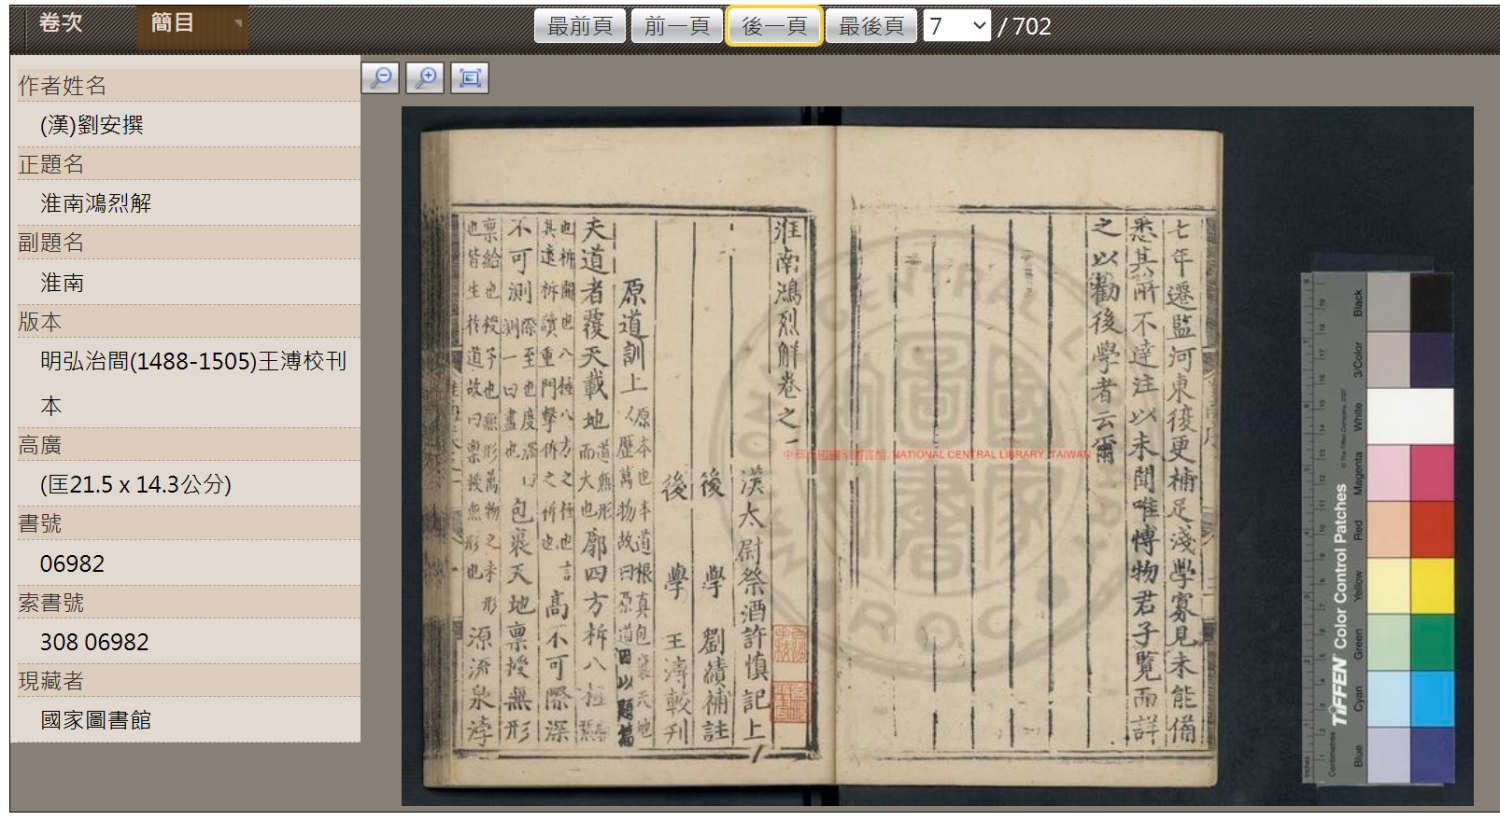 卷次
簡目
最前頁
前一頁
後一頁
最後頁
7
/ 702
作者姓名
(漢)劉安撰
正題名
淮南鴻烈解
副題名
淮南
版本
明弘治間(1488-1505)王溥校刊
本
高廣
(匡21.5 x 14.3公分)
書號
06982
索書號
308 06982
現藏者
國家圖書館
七年遷監河東復更補足淺學寡見未能備
悉其所不達注以未聞唯博物君子覽而詳
之以勸後學者云爾
淮南鴻烈解卷之一
漢太尉祭酒許慎記上
後學劉績補註
後學王溥較刋
原道訓上
原本也本道根真包裹天地
歷萬物故曰原道因以題篇
夫道者覆天載地
道無形
而大也
廓四方柝八極
高不可際深
不可測
包裹天地稟授無形
源流泉浡
NATIONAL CENTRAL LIBRARY, TAIWAN
TIFFEN Color Control Patches
© The Tiffen Company, 2007
Centimetres
Inches
Blue
Cyan
Green
Yellow
Red
Magenta
White
3/Color
Black